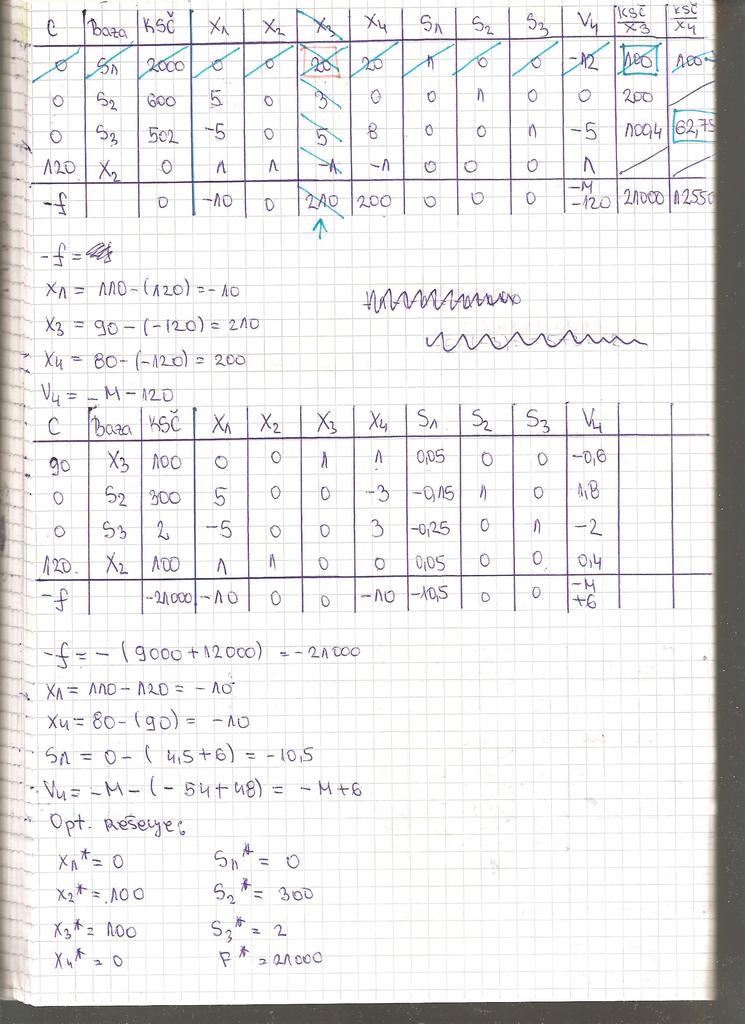 C Baza KSČ X1 X2 X3 X4 S1 S2 S3 V4 KSČ/X3 KSČ/X4
0 S1 2000 0 0 20 20 1 0 0 -12 100 100
0 S2 600 5 0 3 0 0 1 0 0 200
0 S3 502 -5 0 5 8 0 0 1 -5 100,4 62,75
120 X2 0 1 1 -1 -1 0 0 0 1
-f 0 -10 0 210 200 0 0 0 -M-120 21000 12550
-f =
X1 = 110-(120) = -10
X3 = 90-(-120) = 210
X4 = 80-(-120) = 200
V4 = -M-120
C Baza KSČ X1 X2 X3 X4 S1 S2 S3 V4
90 X3 100 0 0 1 1 0,05 0 0 -0,6
0 S2 300 5 0 0 -3 -0,15 1 0 1,8
0 S3 2 -5 0 0 3 -0,25 0 1 -2
120 X2 100 1 1 0 0 0,05 0 0 0,4
-f -21000 -10 0 0 -10 -10,5 0 0 -M+6
-f = -(9000+12000) = -21000
X1 = 110-120 = -10
X4 = 80-(90) = -10
S1 = 0-(4,5+6) = -10,5
V4 = -M-(-54+48) = -M+6
Opt. Rešenje:
X1* = 0 S1* = 0
X2* = 100 S2* = 300
X3* = 100 S3* = 2
X4* = 0 F* = 21000